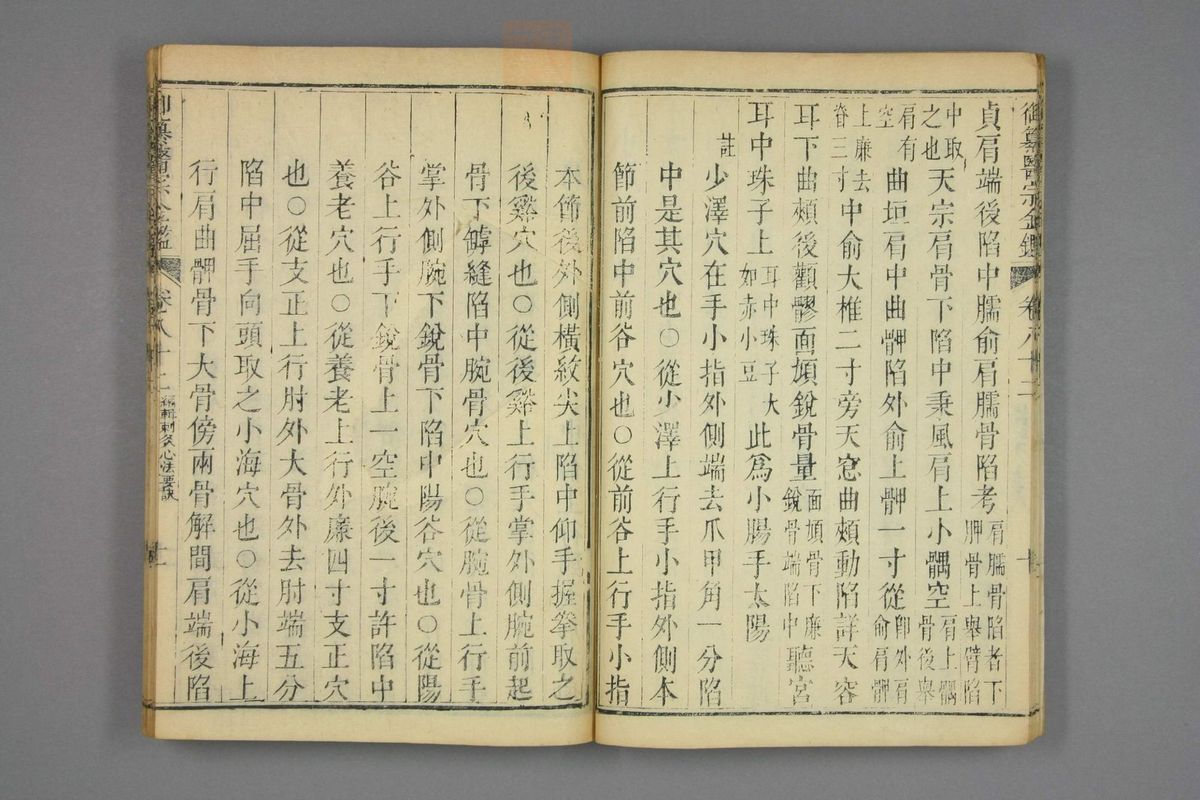 御纂醫宗金鑑 卷八十二
貞肩端後陷中臑俞肩臑骨陷考肩臑骨陷者下胛骨上舉臂陷
中取之也天宗肩骨下陷中秉風肩上小髃空肩上髃骨後舉
肩有空曲垣肩中曲胛陷外俞上胛一寸從卽外肩俞肩胛
上廉去脊三寸中俞大椎二寸旁天窓曲頰動陷詳天容
耳下曲頰後顴髎面頄銳骨量面頄骨下廉銳骨端陷中聽宮
耳中珠子上耳中珠子大如赤小豆此爲小腸手太陽
註少澤穴在手小指外側端去爪甲角一分陷
中是其穴也〇從少澤上行手小指外側本
節前陷中前谷穴也〇從前谷上行手小指
本節後外側橫紋尖上陷中仰手握拳取之
後谿穴也〇從後谿上行手掌外側腕前起
骨下罅縫陷中腕骨穴也〇從腕骨上行手
掌外側腕下銳骨下陷中陽谷穴也〇從陽
谷上行手下銳骨上一空腕後一寸許陷中
養老穴也〇從養老上行外廉四寸支正穴
也〇從支正上行肘外大骨外去肘端五分
陷中屈手向頭取之小海穴也〇從小海上
行肩曲胛骨下大骨傍兩骨解間肩端後陷
御纂醫宗金鑑 卷八十二 編輯刺灸心法要訣 十一